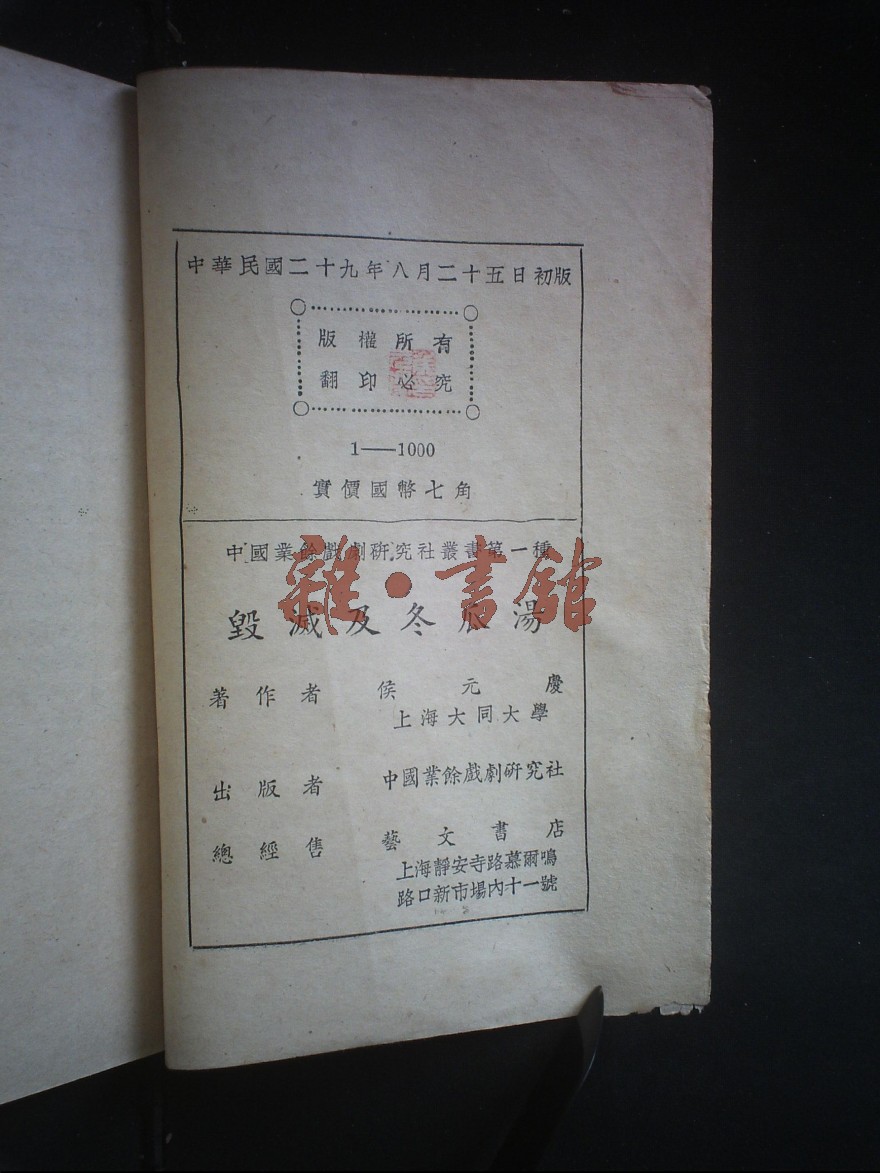 中華民國二十九年八月二十五日初版
版權所有
翻印必究
1——1000
實價國幣七角
中國業餘戲劇研究社叢書第一種
雜·書館
毀滅及冬瓜湯
著作者 侯元慶
上海大同大學
出版者 中國業餘戲劇研究社
總經售 藝文書店
上海靜安寺路慕爾鳴
路口新市場內十一號